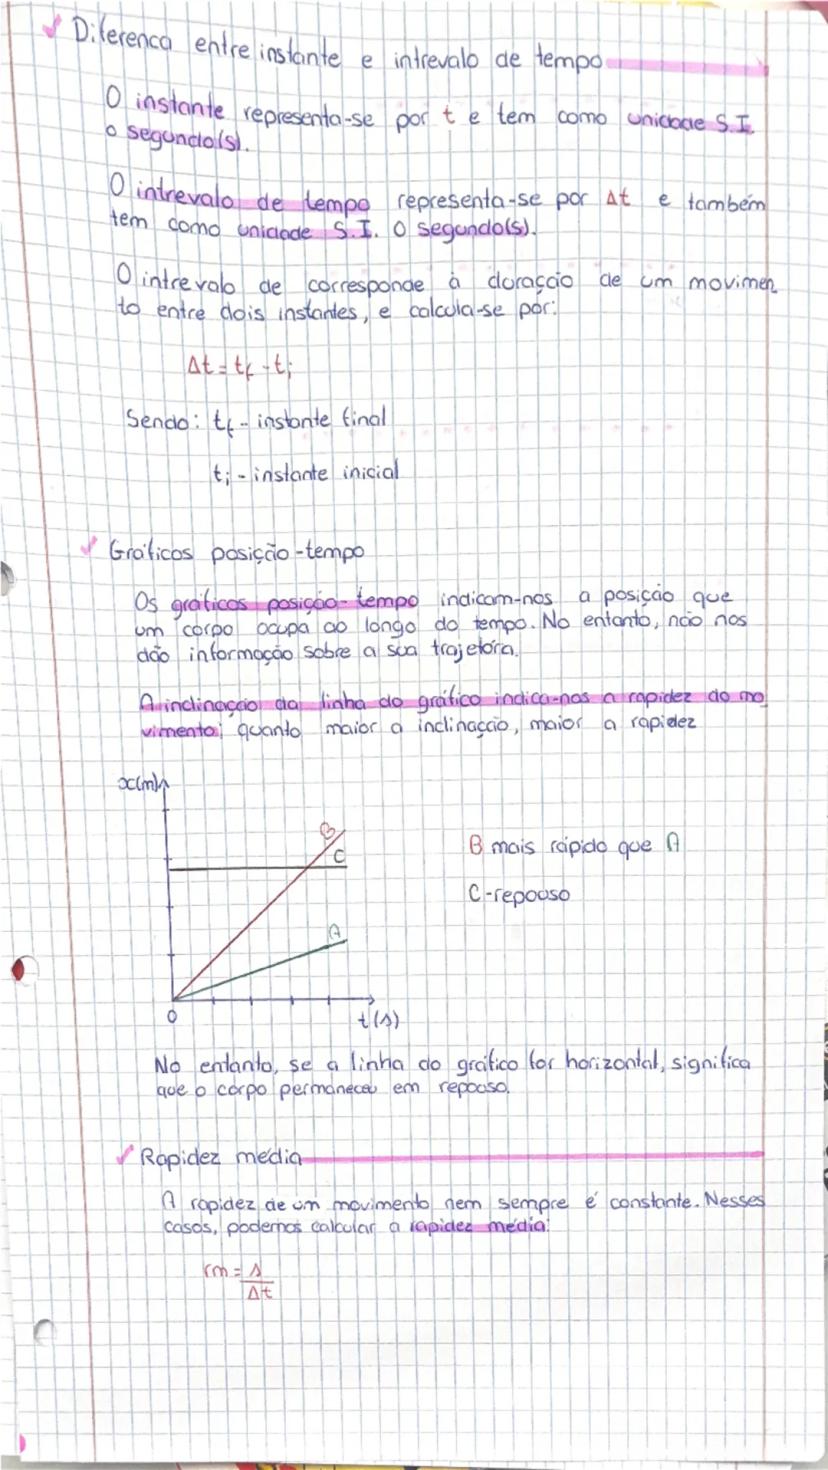 Diferenca entre instante e intrevalo de tempo
O instante representa-se por t e tem como unidade S.I.
o segundo(s).
O intrevalo de tempo representa-se por Δt e também
tem como unidade S.I. o segundo(s).
O intrevalo de corresponde à duração de um movimen
to entre dois instantes, e calcula-se por:
Δt = tf - ti
Sendo: tf - instante final
ti - instante inicial
Gráficos posição-tempo
Os gráficos posição-tempo indicam-nos a posição que
um corpo ocupa ao longo do tempo. No entanto, não nos
dão informação sobre a sua trajetória.
A inclinação da linha do gráfico indica-nos a rapidez do mo
vimento; quanto maior a inclinação, maior a rapidez
x(m)
B
C
B mais rápido que A
C-repouso
A
0
t(s)
No entanto, se a linha do gráfico for horizontal, significa
que o corpo permaneceu em repouso.
Rapidez média
A rapidez de um movimento nem sempre é constante. Nesses
casos, podemos calcular a rapidez média:
rm = s
Δt